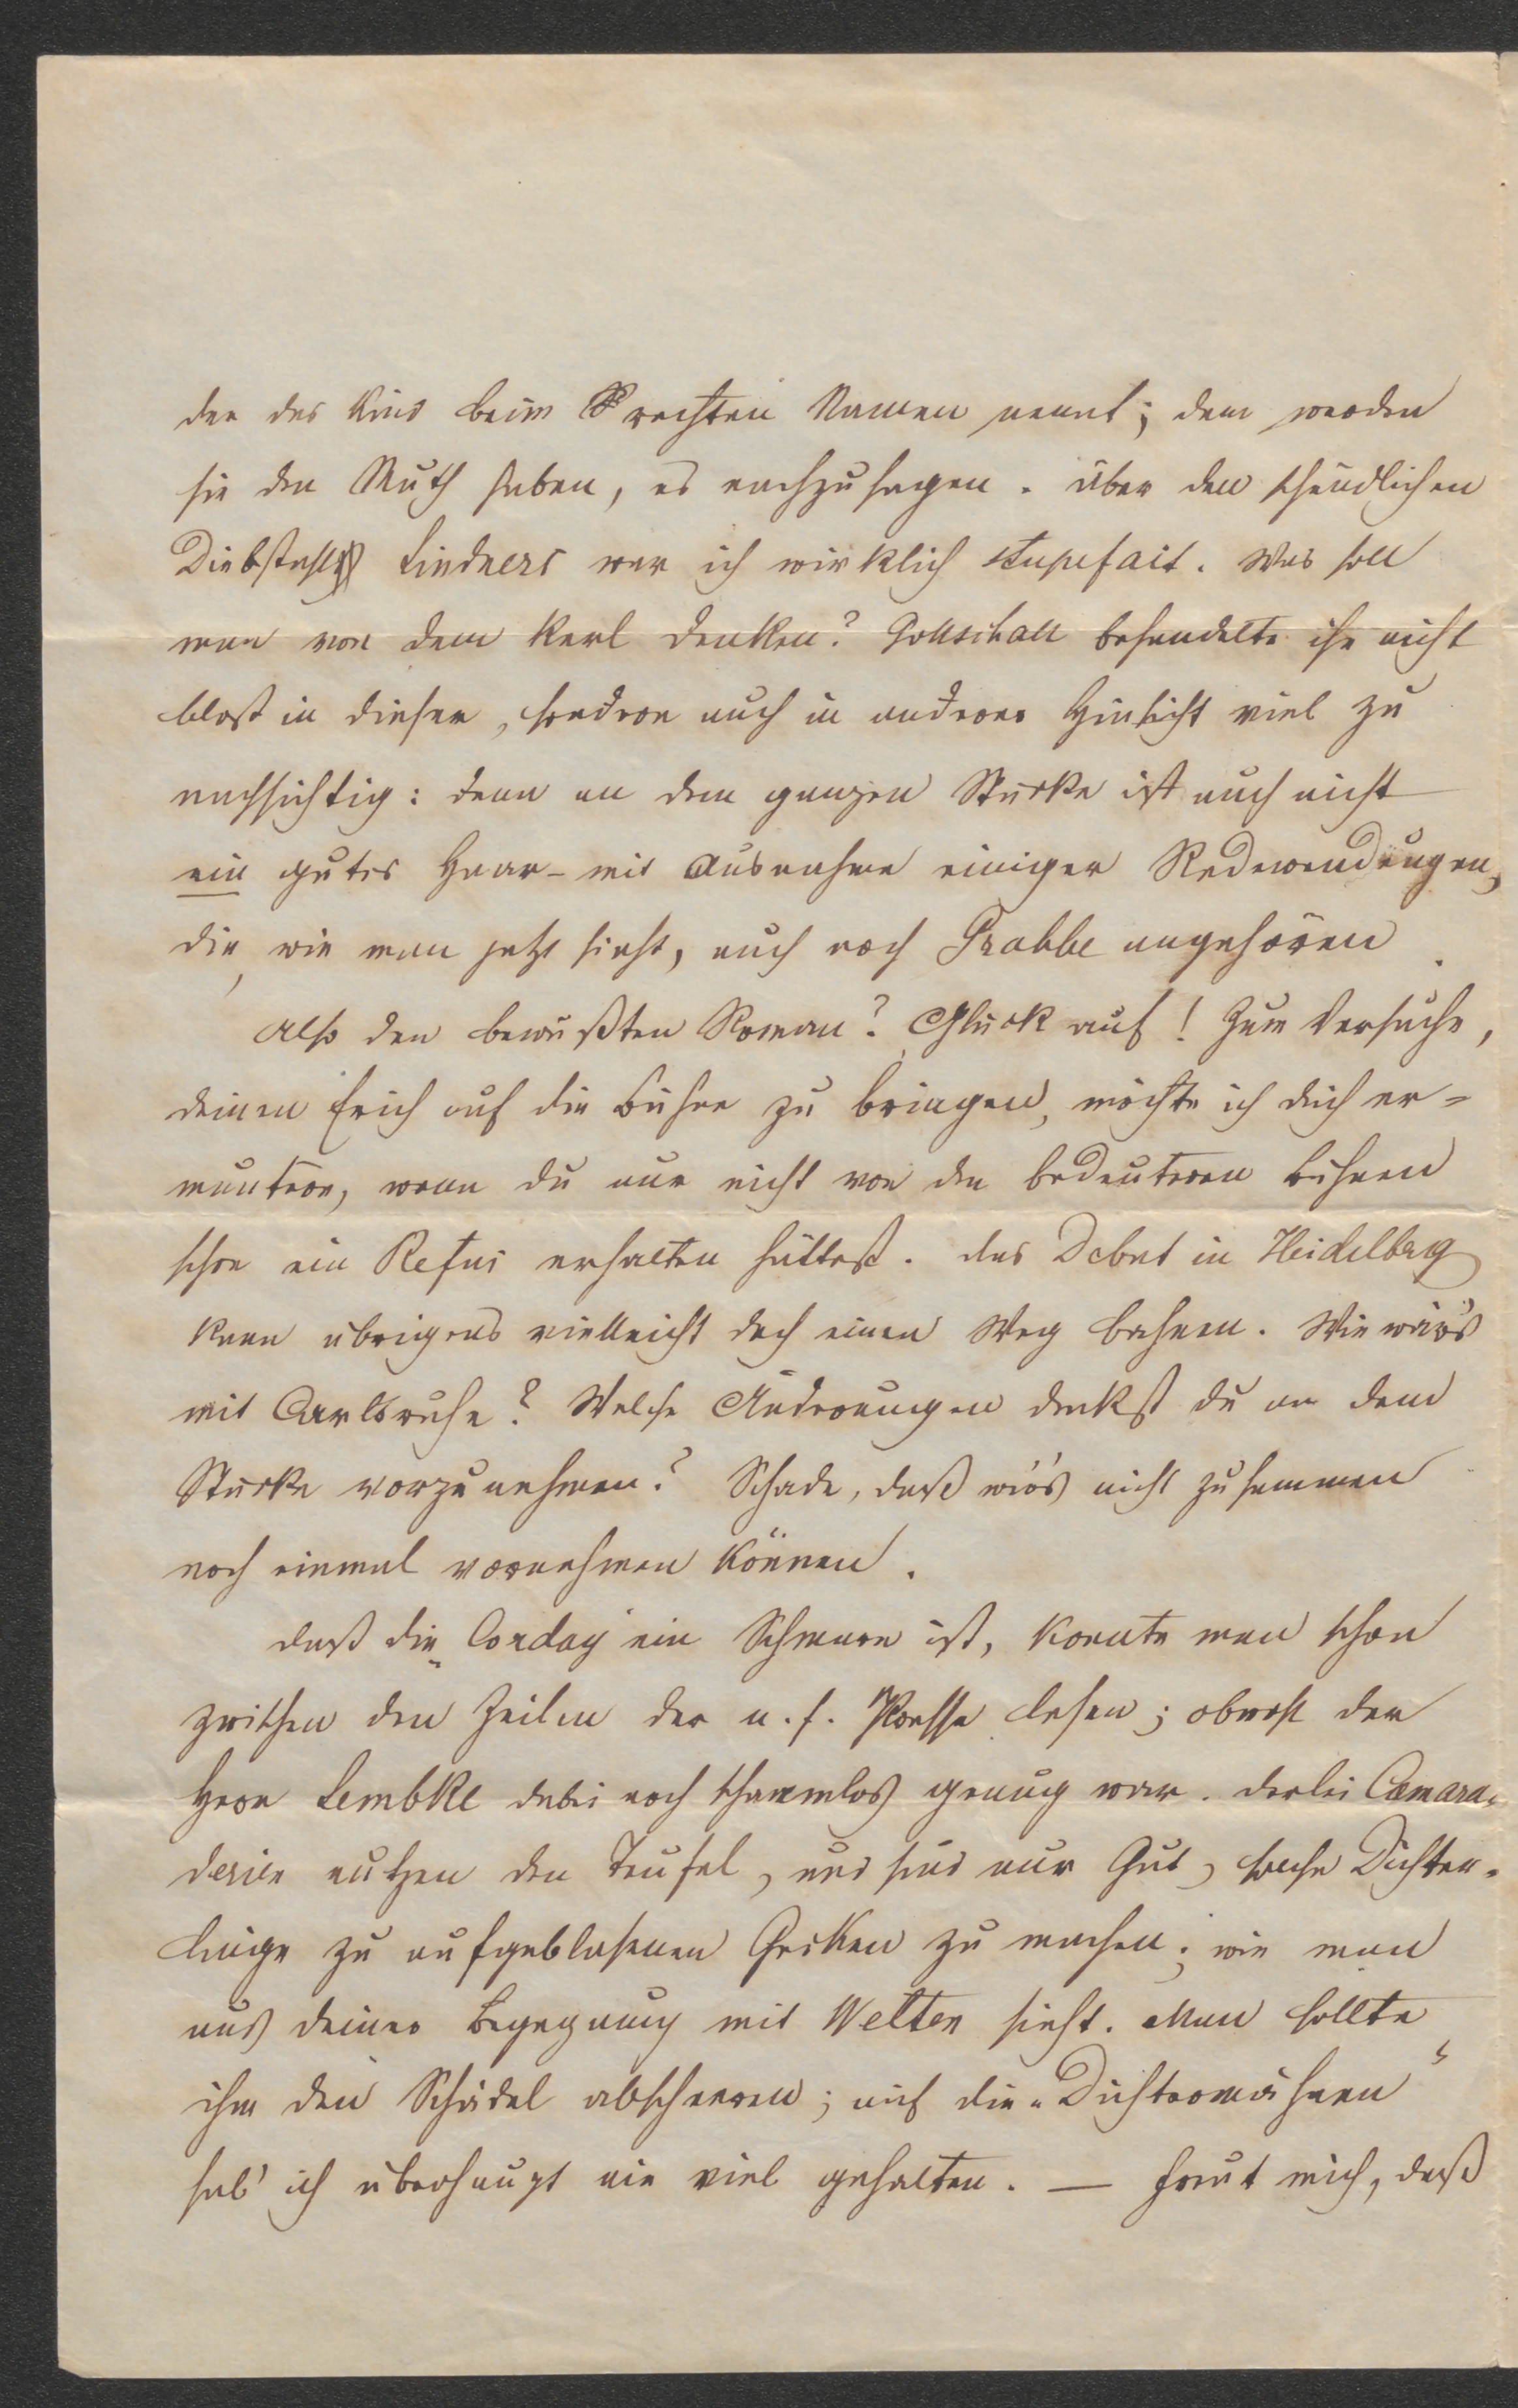 der das Kind beim rechten Namen nennt; dann werden
sie den Muth haben, es nachzusagen. Über den schändlichen
Diebstahl Lindners war ich wirklich stupefait. Was soll
man von dem Kerl denken? Gottschall behandelte ihn nicht
blost in dieser, sondern auch in anderer Hinsicht viel zu
nachsichtig: denn an dem ganzen Stücke ist auch nicht
ein gutes Haar – mit Ausnahme einiger Redewendungen,
die, wie man jetzt sieht, auch noch Grabbe angehören.
Also den bewußten Roman? Glück auf! Zum Versuche,
deinen Erich auf die Bühne zu bringen, möchte ich dich er=
muntern, wenn du nur nicht von den bedeutenen Bühnen
schon ein Refus erhalten hättest. Das Debut in Heidelberg
kann übrigens vielleicht doch einen Weg bahnen. Wie wär's
mit Carlsruhe? Welche Änderungen denkst du an dem
Stücke vorzunehmen? Schade, daß wir's nicht zusammen
noch einmal vornehmen können.
Daß die „Corday" ein Schmarn ist, konnte man schon
zwischen den Zeilen der n. f. Presse lesen; obwohl der
Herr Lembke dabei noch schaamlos genug war. Derlei Camara=
derien nutzen den Teufel, und sind nur Gut, solche Dichter=
linge zu aufgeblasenen Gecken zu machen; wie man
aus deiner Begegnung mit Welten sieht. Man sollte
ihm den Schädel abscheeren; auf die „Dichtermähnen"
hab' ich überhaupt nie viel gehalten. — Freut mich, daß